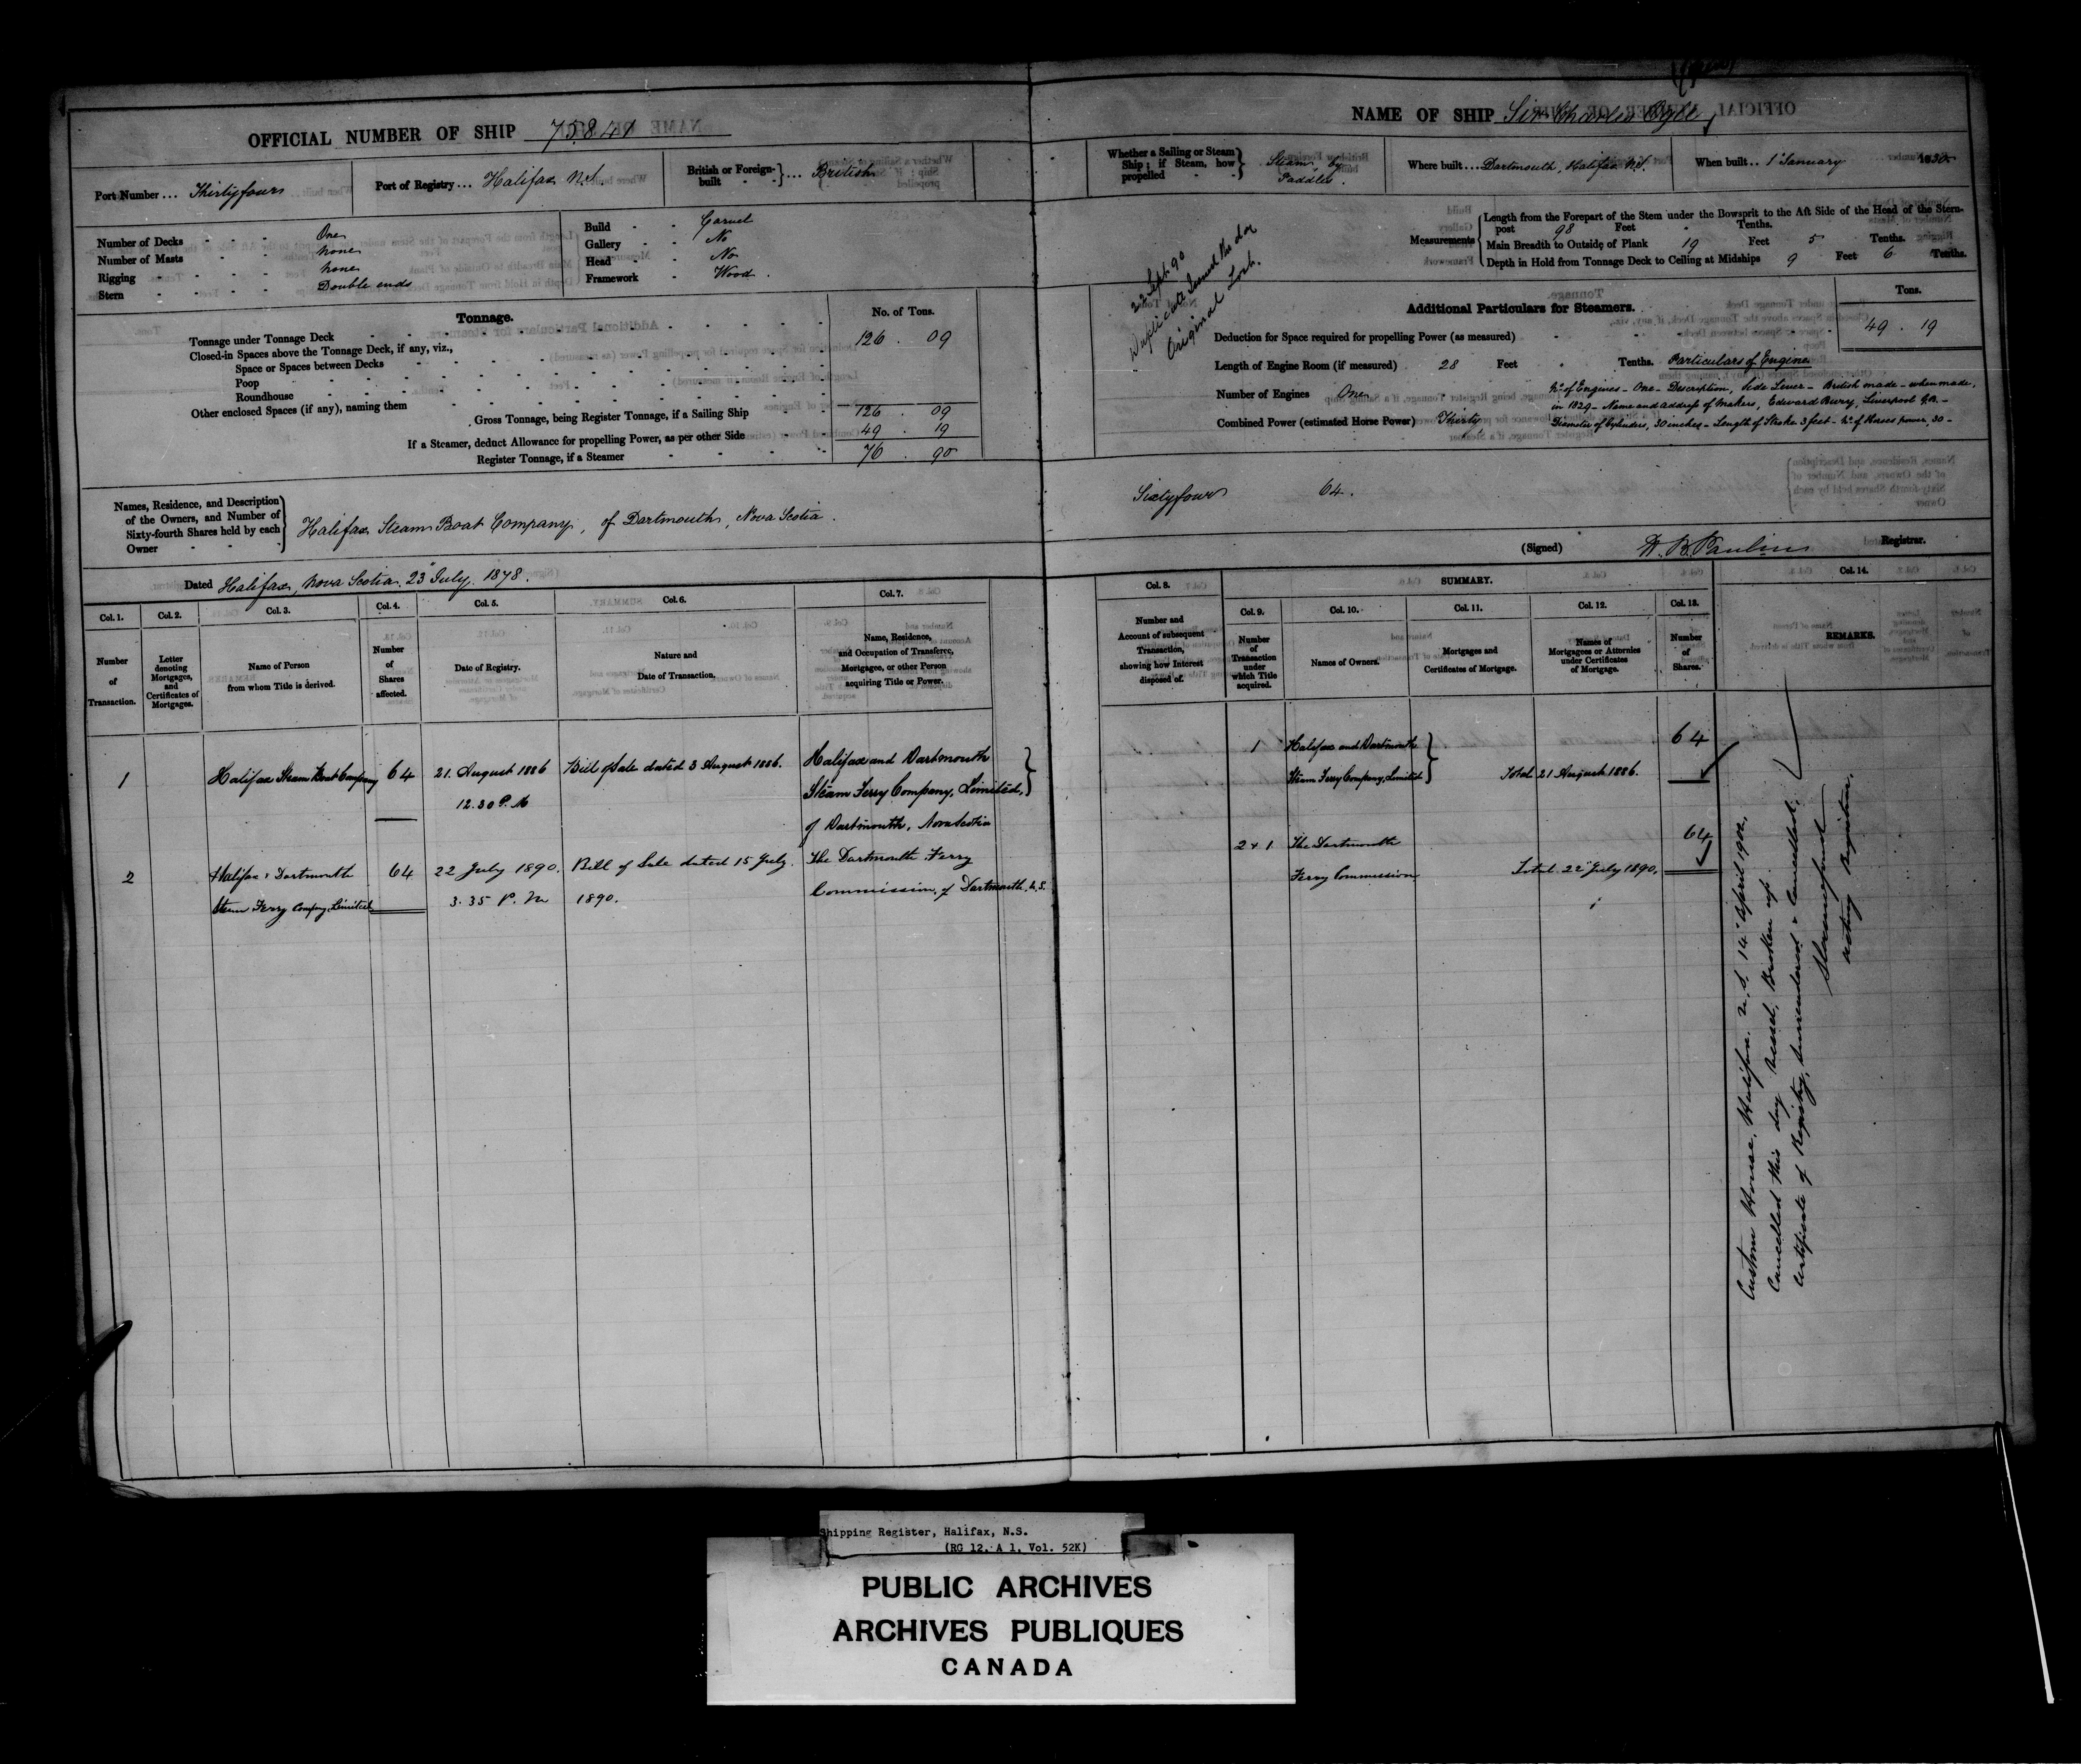 OFFICIAL NUMBER OF SHIP 75841
Port Number ... Thirtyfour
Port of Registry ... Halifax N.S.
British or Foreign-built } ... British
Number of Decks - - - One
Number of Masts - - - None
Rigging - - - - None
Stern - - - - Double ends
Build - - Carvel
Gallery - - No
Head - - No
Framework - Wood.
Tonnage.
No. of Tons.
Tonnage under Tonnage Deck 126 . 09
Closed-in Spaces above the Tonnage Deck, if any, viz.,
Space or Spaces between Decks
Poop
Roundhouse
Other enclosed Spaces (if any), naming them
Gross Tonnage, being Register Tonnage, if a Sailing Ship 126 . 09
If a Steamer, deduct Allowance for propelling Power, as per other Side 49 . 19
Register Tonnage, if a Steamer 76 . 90
Names, Residence, and Description
of the Owners, and Number of
Sixty-fourth Shares held by each
Owner
Halifax Steam Boat Company, of Dartmouth, Nova Scotia.
Dated Halifax, Nova Scotia. 23 July. 1878.
Col. 1.
Number
of
Transaction.
Col. 2.
Letter
denoting
Mortgages,
and
Certificates of
Mortgages.
Col. 3.
Name of Person
from whom Title is derived.
Col. 4.
Number
of
Shares
affected.
Col. 5.
Date of Registry.
Col. 6.
Nature and
Date of Transaction.
Col. 7.
Name, Residence,
and Occupation of Transferee,
Mortgagee, or other Person
acquiring Title or Power.
1
Halifax Steam Boat Company
64
21. August 1886
12.30 P.M
Bill of Sale dated 3 August 1886.
Halifax and Dartmouth
Steam Ferry Company, Limited,
of Dartmouth, Nova Scotia
2
Halifax & Dartmouth
Steam Ferry Company, Limited
64
22 July 1890.
3.35 P.M
Bill of Sale dated 15 July
1890.
The Dartmouth Ferry
Commission, of Dartmouth, N.S.
NAME OF SHIP Sir Charles Ogle
Whether a Sailing or Steam
Ship; if Steam, how
propelled
Steam by
Paddles.
Where built ... Dartmouth, Halifax N.S.
When built .. 1 January 1830
22 Sept. 90
Duplicate Issued
Original Lost.
Measurements
Length from the Forepart of the Stem under the Bowsprit to the Aft Side of the Head of the Stern-
post 98 Feet Tenths.
Main Breadth to Outside of Plank 19 Feet 5 Tenths.
Depth in Hold from Tonnage Deck to Ceiling at Midships 9 Feet 6 Tenths.
Additional Particulars for Steamers.
Tons.
Deduction for Space required for propelling Power (as measured) 49 . 19
Length of Engine Room (if measured) 28 Feet Tenths. Particulars of Engine
Number of Engines One
Combined Power (estimated Horse Power) Thirty
No. of Engines - One - Description, Side Lever - British made - when made,
in 1829 - Name and address of Makers, Edward Bury, Liverpool G.B. -
Diameter of Cylinders, 30 inches - Length of Stroke 3 feet - No. of Horses power, 30 -
Sixtyfour 64.
(Signed) Registrar.
Col. 8.
Number and
Account of subsequent
Transaction,
showing how Interest
disposed of.
SUMMARY.
Col. 9.
Number
of
Transaction
under
which Title
acquired.
Col. 10.
Names of Owners.
Col. 11.
Mortgages and
Certificates of Mortgage.
Col. 12.
Names of
Mortgagees or Attornies
under Certificates
of Mortgage.
Col. 13.
Number
of
Shares.
Col. 14.
REMARKS.
1
Halifax and Dartmouth
Steam Ferry Company, Limited
Total 21 August 1886.
64
2 & 1
The Dartmouth
Ferry Commission
Total 22 July 1890.
64
Custom House. Halifax. N.S. 14 April 1902.
Cancelled this day Vessel Broken up.
Certificate of Registry, surrendered & cancelled.
Acting Registrar.
Shipping Register, Halifax, N.S.
(RG 12, A 1, Vol. 52K)
PUBLIC ARCHIVES
ARCHIVES PUBLIQUES
CANADA